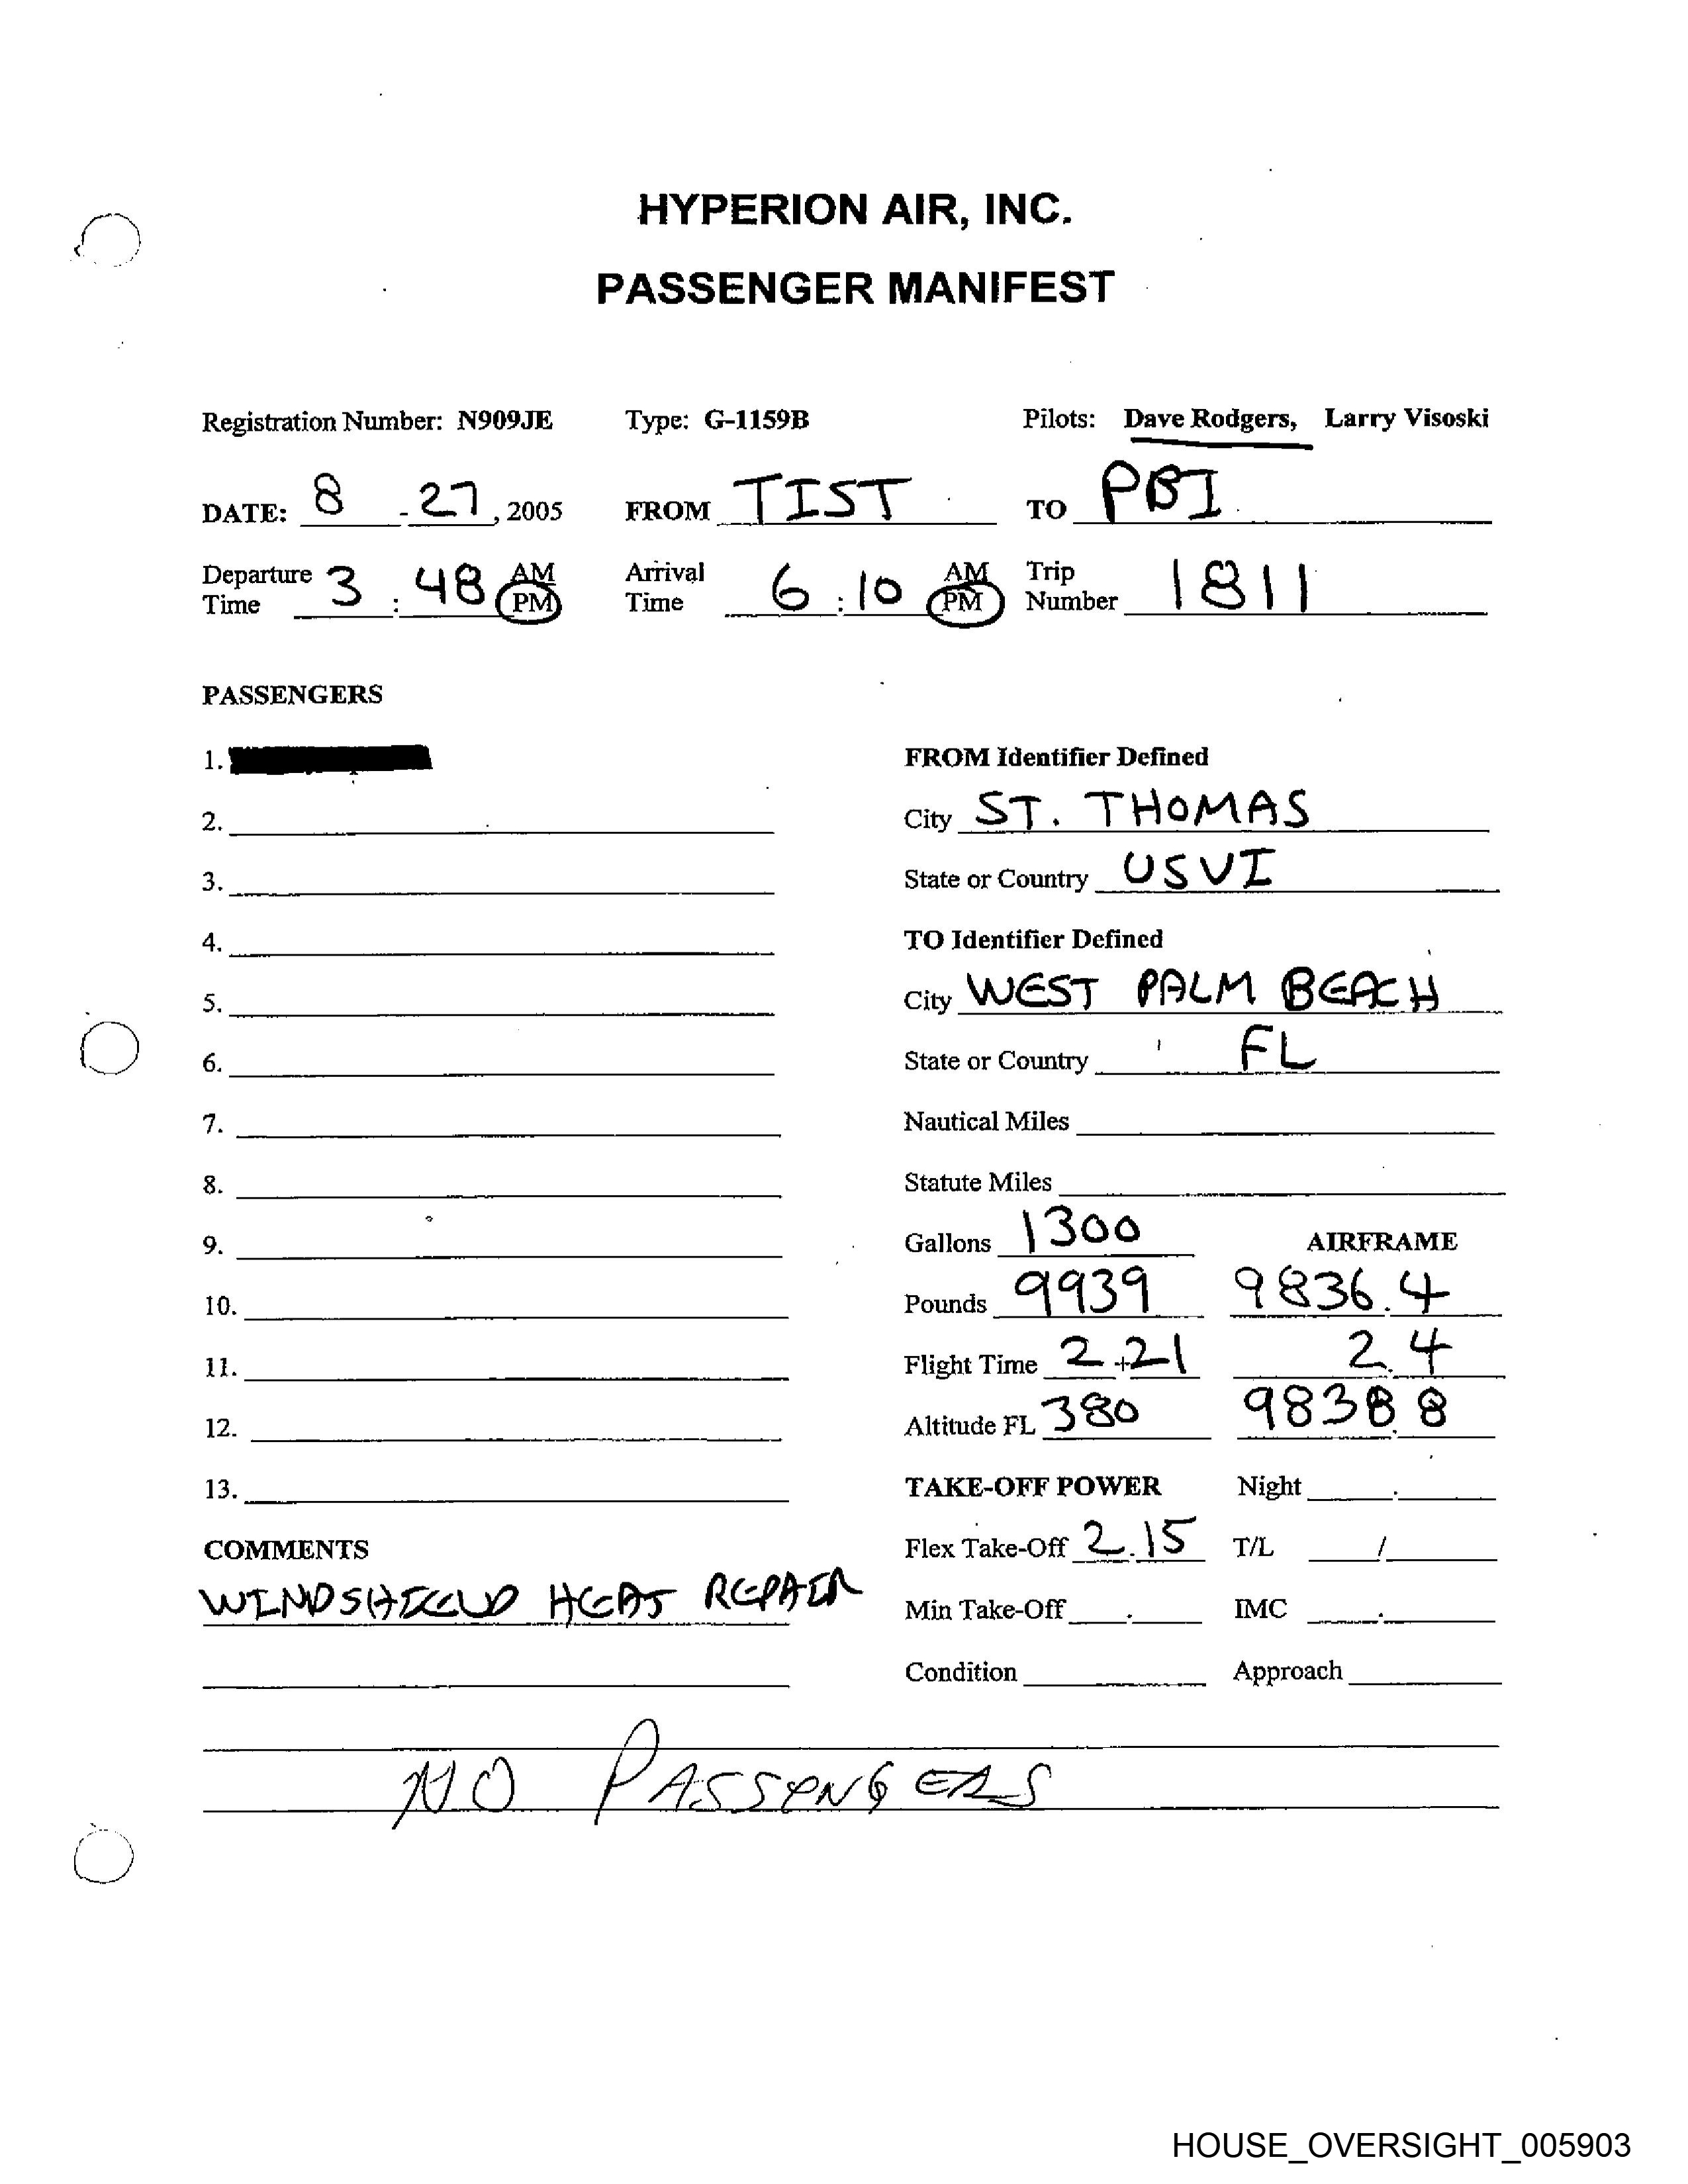 HYPERION AIR, INC.
PASSENGER MANIFEST
Registration Number: N909JE Type: G-1159B Pilots: Dave Rodgers, Larry Visoski
DATE: 8 - 27, 2005 FROM TIST TO PBI
Departure Time 3 : 48 AM PM Arrival Time 6 : 10 AM PM Trip Number 1811
PASSENGERS
1. FROM Identifier Defined
2. City ST. THOMAS
3. State or Country USVI
4. TO Identifier Defined
5. City WEST PALM BEACH
6. State or Country FL
7. Nautical Miles
8. Statute Miles
9. Gallons 1300 AIRFRAME
10. Pounds 9939 9836.4
11. Flight Time 2+21 2.4
12. Altitude FL 380 9838.8
13. TAKE-OFF POWER Night .
COMMENTS Flex Take-Off 2.15 T/L /
WINDSHIELD HEAT REPAIR Min Take-Off . IMC .
Condition Approach
NO PASSENGERS
HOUSE_OVERSIGHT_005903